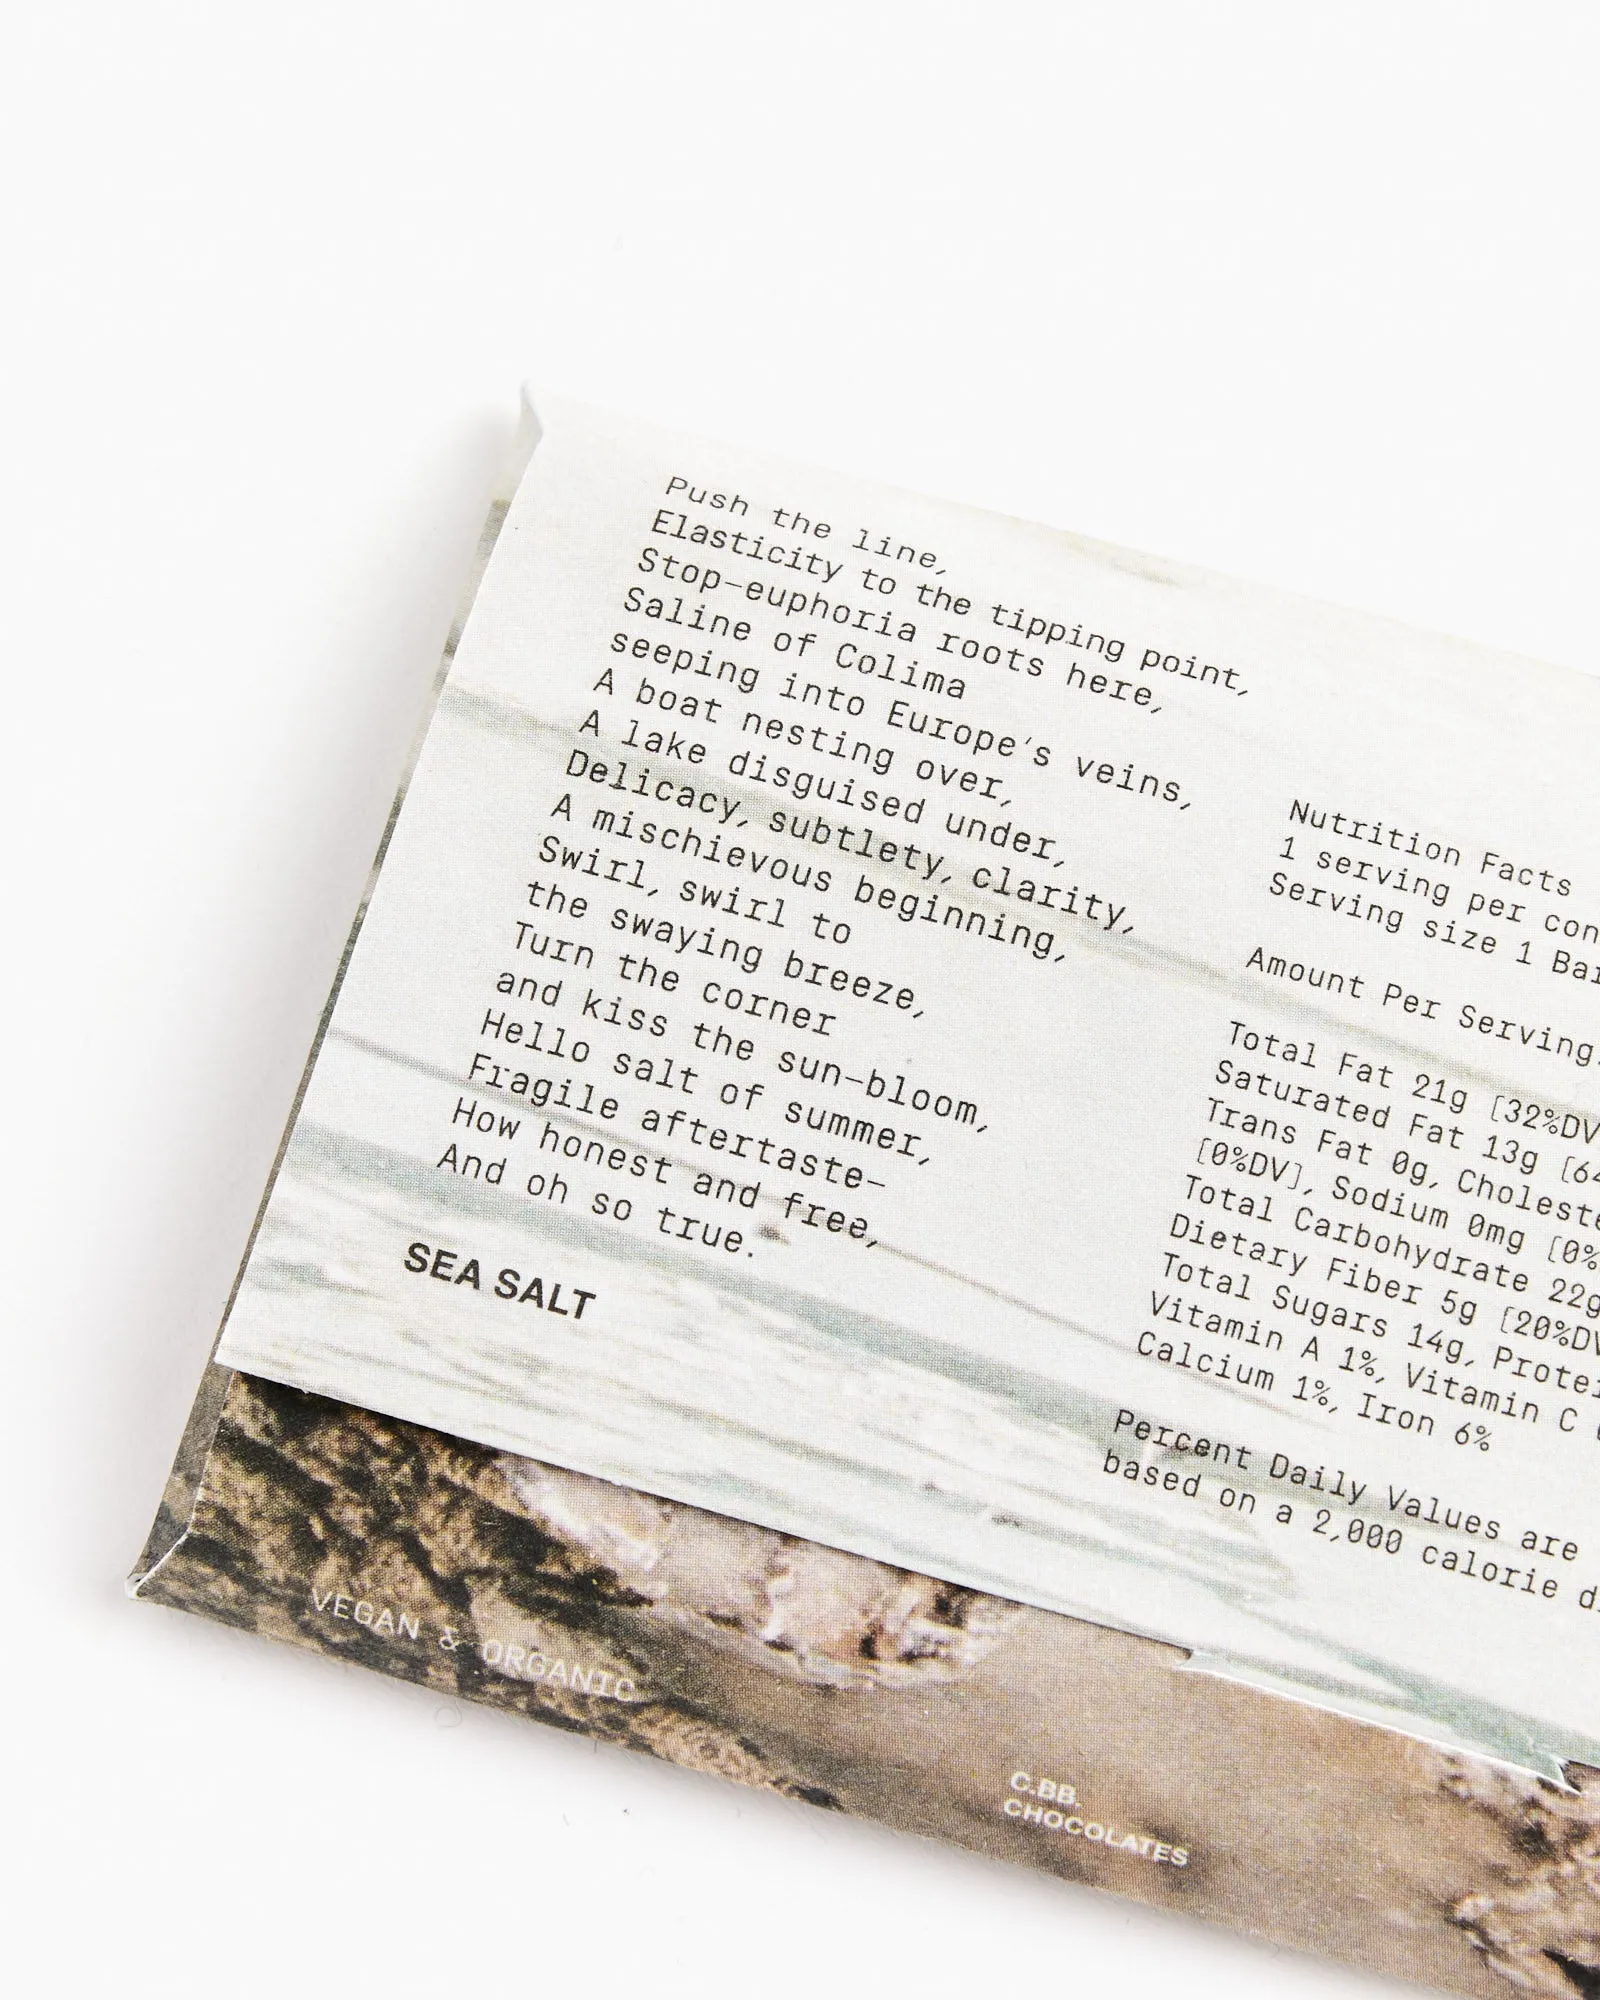 Push the line,
Elasticity to the tipping point,
Stop-euphoria roots here,
Saline of Colima
seeping into Europe's veins,
A boat nesting over,
A lake disguised under,
Delicacy, subtlety, clarity,
A mischievous beginning,
Swirl, swirl to
the swaying breeze,
Turn the corner
and kiss the sun-bloom,
Hello salt of summer,
Fragile aftertaste-
How honest and free,
And oh so true.
SEA SALT
Nutrition Facts
1 serving per
Serving size 1
Amount Per Serving
Total Fat 21g [32%DV
Saturated Fat 13g
Trans Fat 0g,
[0%DV], Sodium 0mg [0%
Total Carbohydrate 22g
Dietary Fiber 5g [20%DV
Total Sugars 14g,
Vitamin A 1%, Vitamin C
Calcium 1%, Iron 6%
Percent Daily Values are
based on a 2,000 calorie
VEGAN & ORGANIC
C.BB.
CHOCOLATES